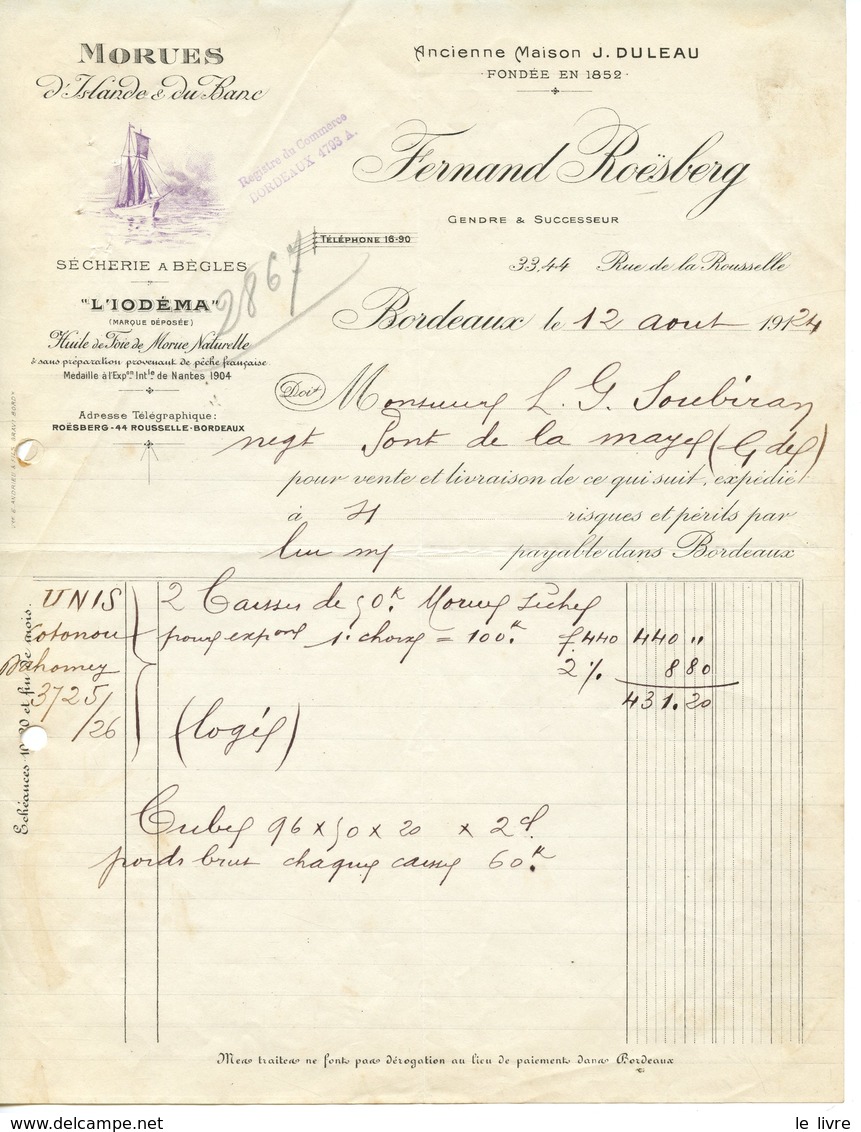 MORUES
d'Islande & du Banc
Ancienne Maison J. DULEAU
FONDÉE EN 1852
Registre du Commerce
BORDEAUX 4703 A.
Fernand Roësberg
GENDRE & SUCCESSEUR
TÉLÉPHONE 16-90
SÉCHERIE A BÈGLES
33.44 Rue de la Rousselle
2867
"L'IODÉMA"
(MARQUE DÉPOSÉE)
Huile de Foie de Morue Naturelle
& sans préparation provenant de pêche française.
Medaille à l'Expon Intle de Nantes 1904
Bordeaux le 12 aout 1924
Adresse Télégraphique:
ROËSBERG-44 ROUSSELLE-BORDEAUX
Doit
Monsieur L. G. Soubiran
negt Pont de la maye (Gde)
pour vente et livraison de ce qui suit, expédié
à risques et périls par
payable dans Bordeaux
UNIS
Cotonou
Dahomey
3725/
/26
2 Caisses de 50k. Morues sèches
pour export 1r choix = 100k. f. 440 440 "
2% 8 80
431.20
(logé)
Cube 96 x 50 x 20 x 2 c/.
poids brut chaque caisse 60k.
Echéances 10, 20 et fin de mois.
Mes traites ne font pas dérogation au lieu de paiements dans Bordeaux
le livre